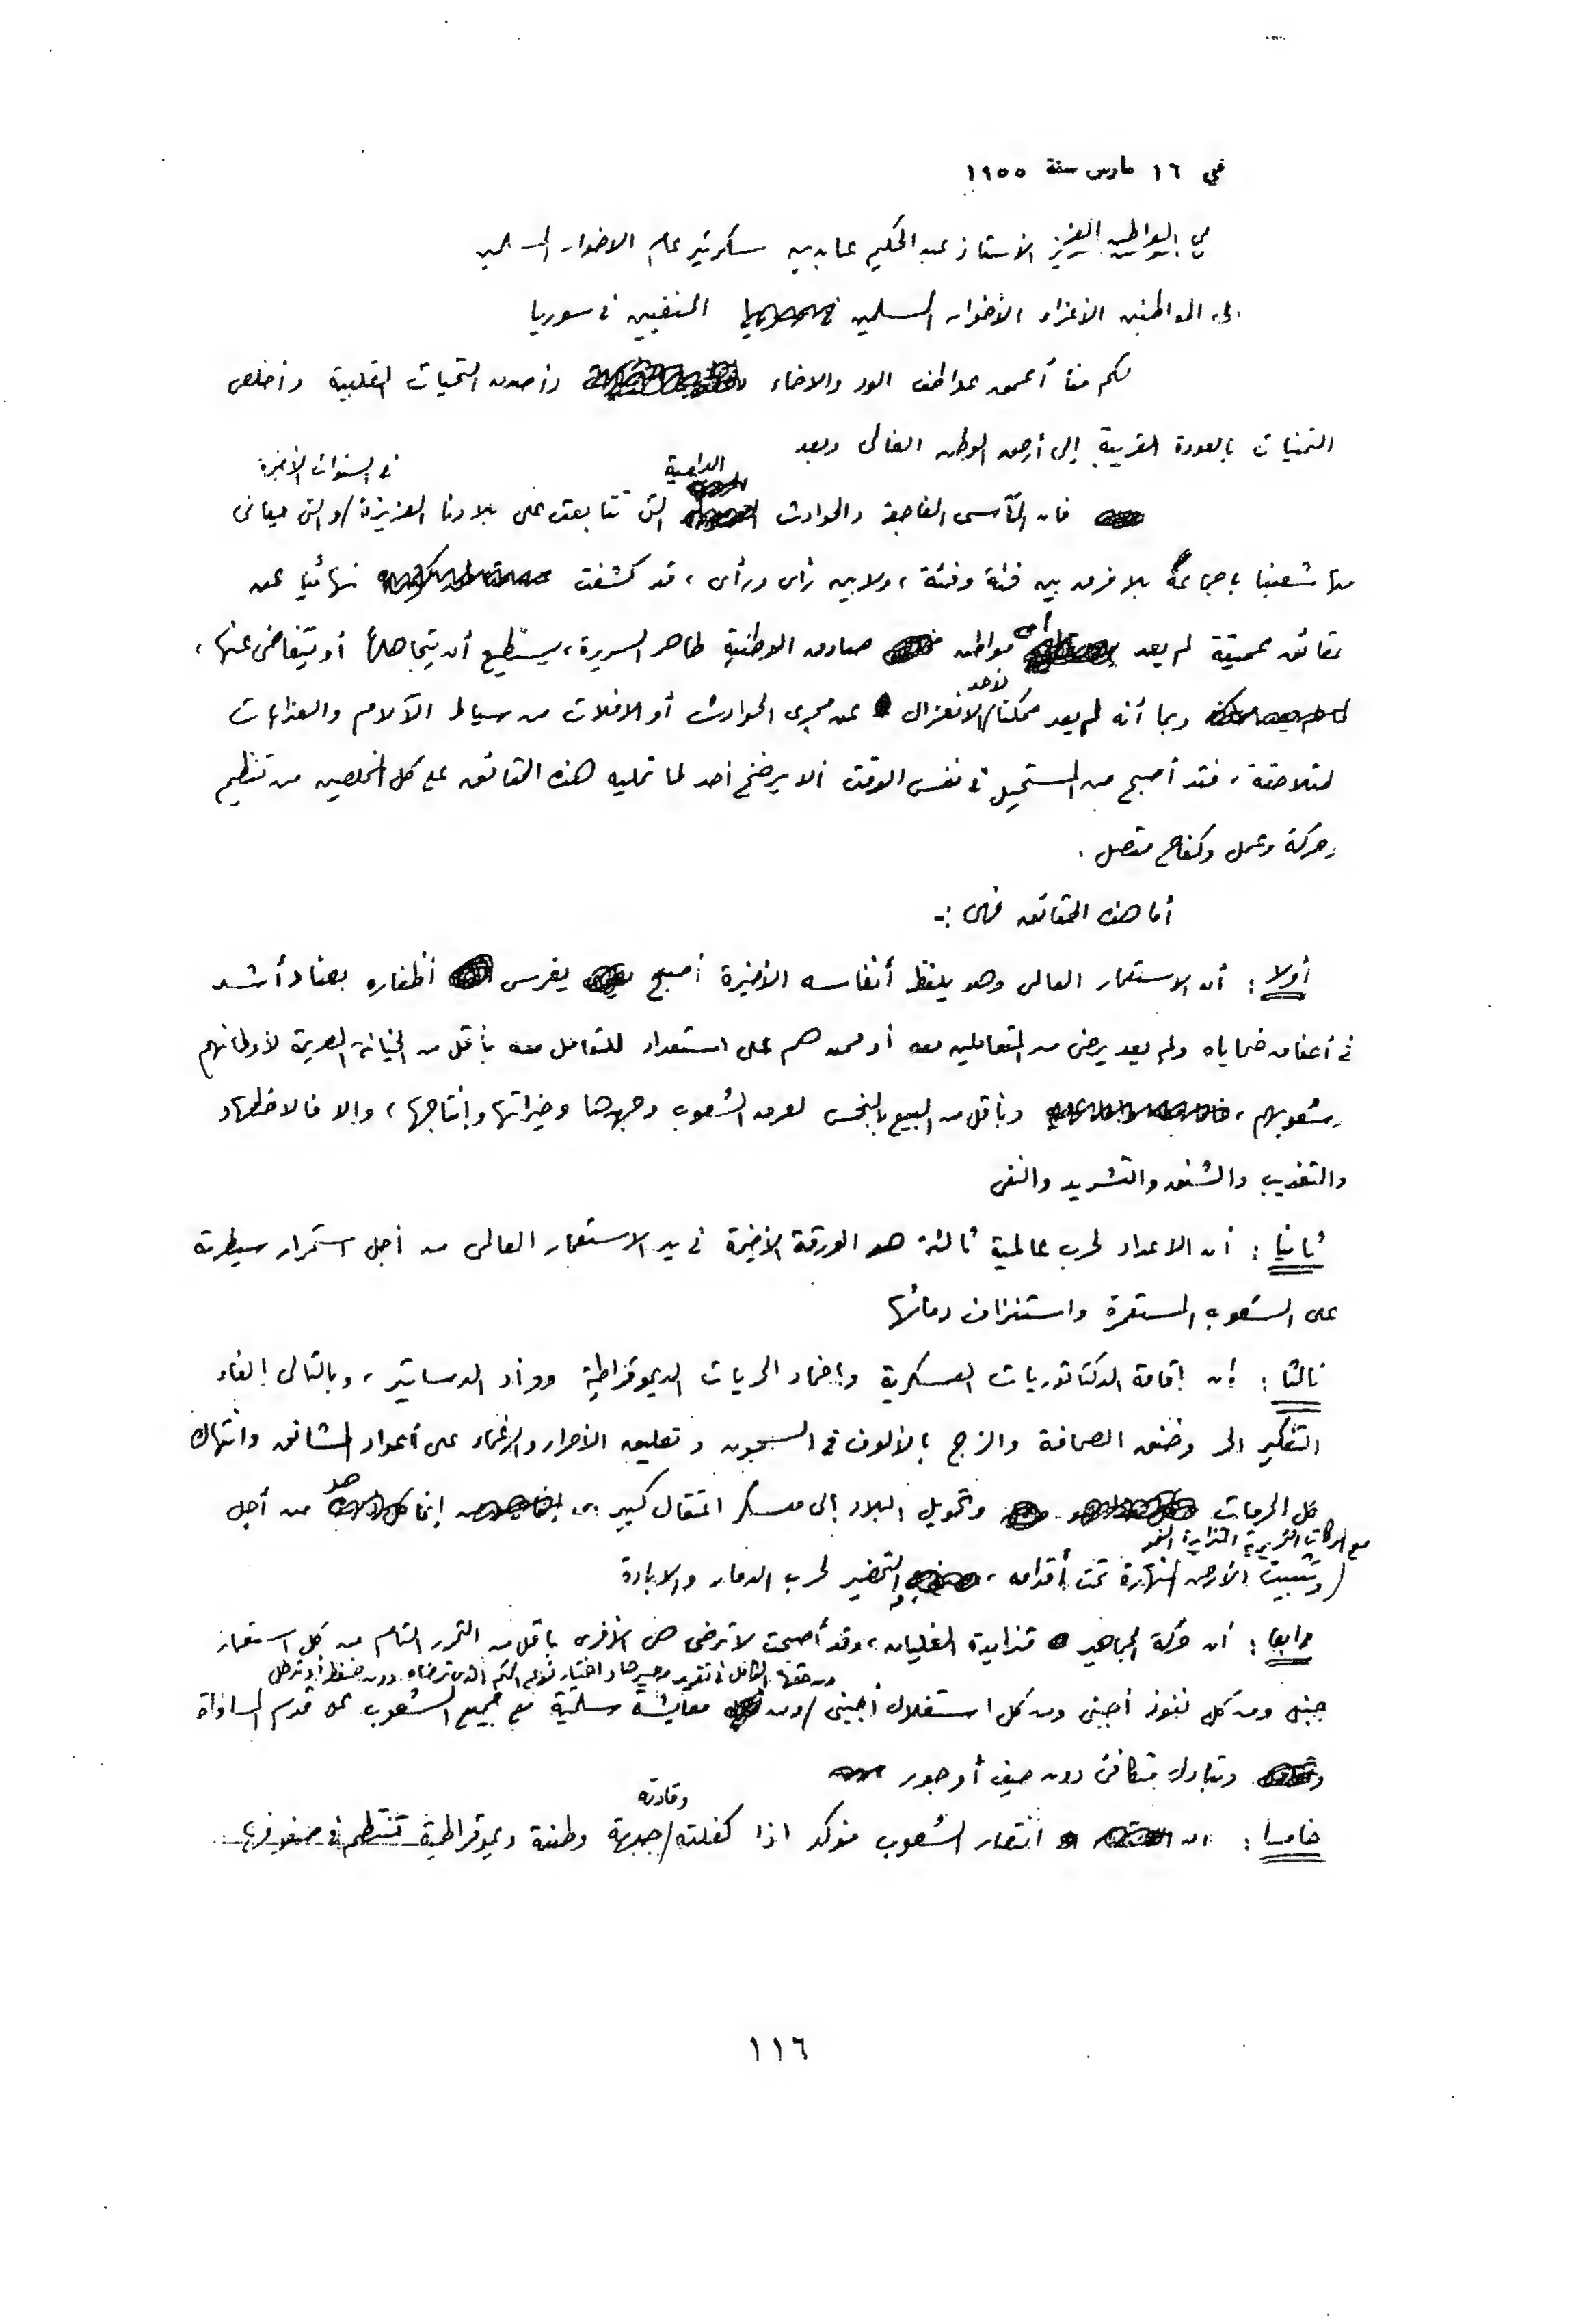 في ١٦ مارس سنة ١٩٥٥
إلى المواطن العزيز الأستاذ عبد الحكيم عابدين سكرتير عام الاخوان المسلمين
إلى المواطنين الأعزاء الأخوان المسلمين المنفيين فى سوريا
لكم منا أعمق عواطف الود والاخاء وأصدق التحيات القلبية وأخلص
التمنيات بالعودة القريبة إلى أرض الوطن الغالى وبعد
فى السنوات الأخيرة
الدامية
فان المآسى الفاجعة والحوادث التى تتابعت على بلادنا العزيزة / والتى يعانى
منها شعبنا بأجمعه بلا فرق بين فئة وفئة، ولا بين رأى ورأى، قد كشفت نهائيا عن
حقائق عميقة لم يعد أى مواطن صادق الوطنية طاهر السريرة، يستطيع أن يتجاهلها أو يتغاضى عنها،
لأحد
وبما أنه لم يعد ممكنا / الانعزال عن مجرى الحوادث أو الافلات من سياط الآلام والعذابات
المتلاحقة، فقد أصبح من المستحيل فى نفس الوقت ألا يرضخ أحد لما تمليه هذه الحقائق على كل المخلصين من تنظيم
وحركة وعمل وكفاح متصل.
أما هذه الحقائق فهى :-
أولا : أن الاستعمار العالمى وهو يلفظ أنفاسه الأخيرة أصبح يغرس أظفاره بعناد أشد
فى أعناق ضحاياه ولم يعد يرضى من المتعاملين معه أو ممن هم على استعداد للتعامل معه بأقل من الخيانة الصريحة لأوطانهم
وشعوبهم، وبأقل من البيع بالبخس لعرق الشعوب وجهدها وخيراتها وإنتاجها، وإلا فالاضطهاد
والتعذيب والشنق والتشريد والنفى
ثانيا : أن الاعداد لحرب عالمية ثالثة هو الورقة الأخيرة فى يد الاستعمار العالمى من أجل استمرار سيطرته
على الشعوب المستعمرة واستنزاف دمائها
ثالثا : أن إقامة الدكتاتوريات العسكرية وإخماد الحريات الديموقراطية ووأد الدساتير، وبالتالى إلغاء
التفكير الحر وخنق الصحافة والزج بالألوف فى السجون وتعليق الأحرار والزعماء على أعواد المشانق وانتهاك
كل الحرمات وتحويل البلاد إلى معسكر اعتقال كبير إنما كل هو من أجل
مع الحركات التحريرية المتزايدة النمو
/ وتثبيت الأرض المنهارة تحت أقدامه، والتحضير لحرب الدمار والابادة
رابعا : أن حركة الجماهير متزايدة الغليان، وقد أصبحت لا ترضى هى الأخرى بأقل من التحرر التام من كل استعمار
ومن حقها الكامل فى تقرير مصيرها واختيار نوع الحكم الذى ترضاه دون ضغط أو تدخل
أجنبى ومن كل نفوذ أجنبى ومن كل استغلال أجنبى / ومن معايشة سلمية مع جميع الشعوب على قدم المساواة
وتبادل متكافئ دون حيف أو جور
وقادته
خامسا : ان انتصار الشعوب مؤكد اذا كفلته / جبهة وطنية ديموقراطية تنتظم فى صفوفها
١١٦